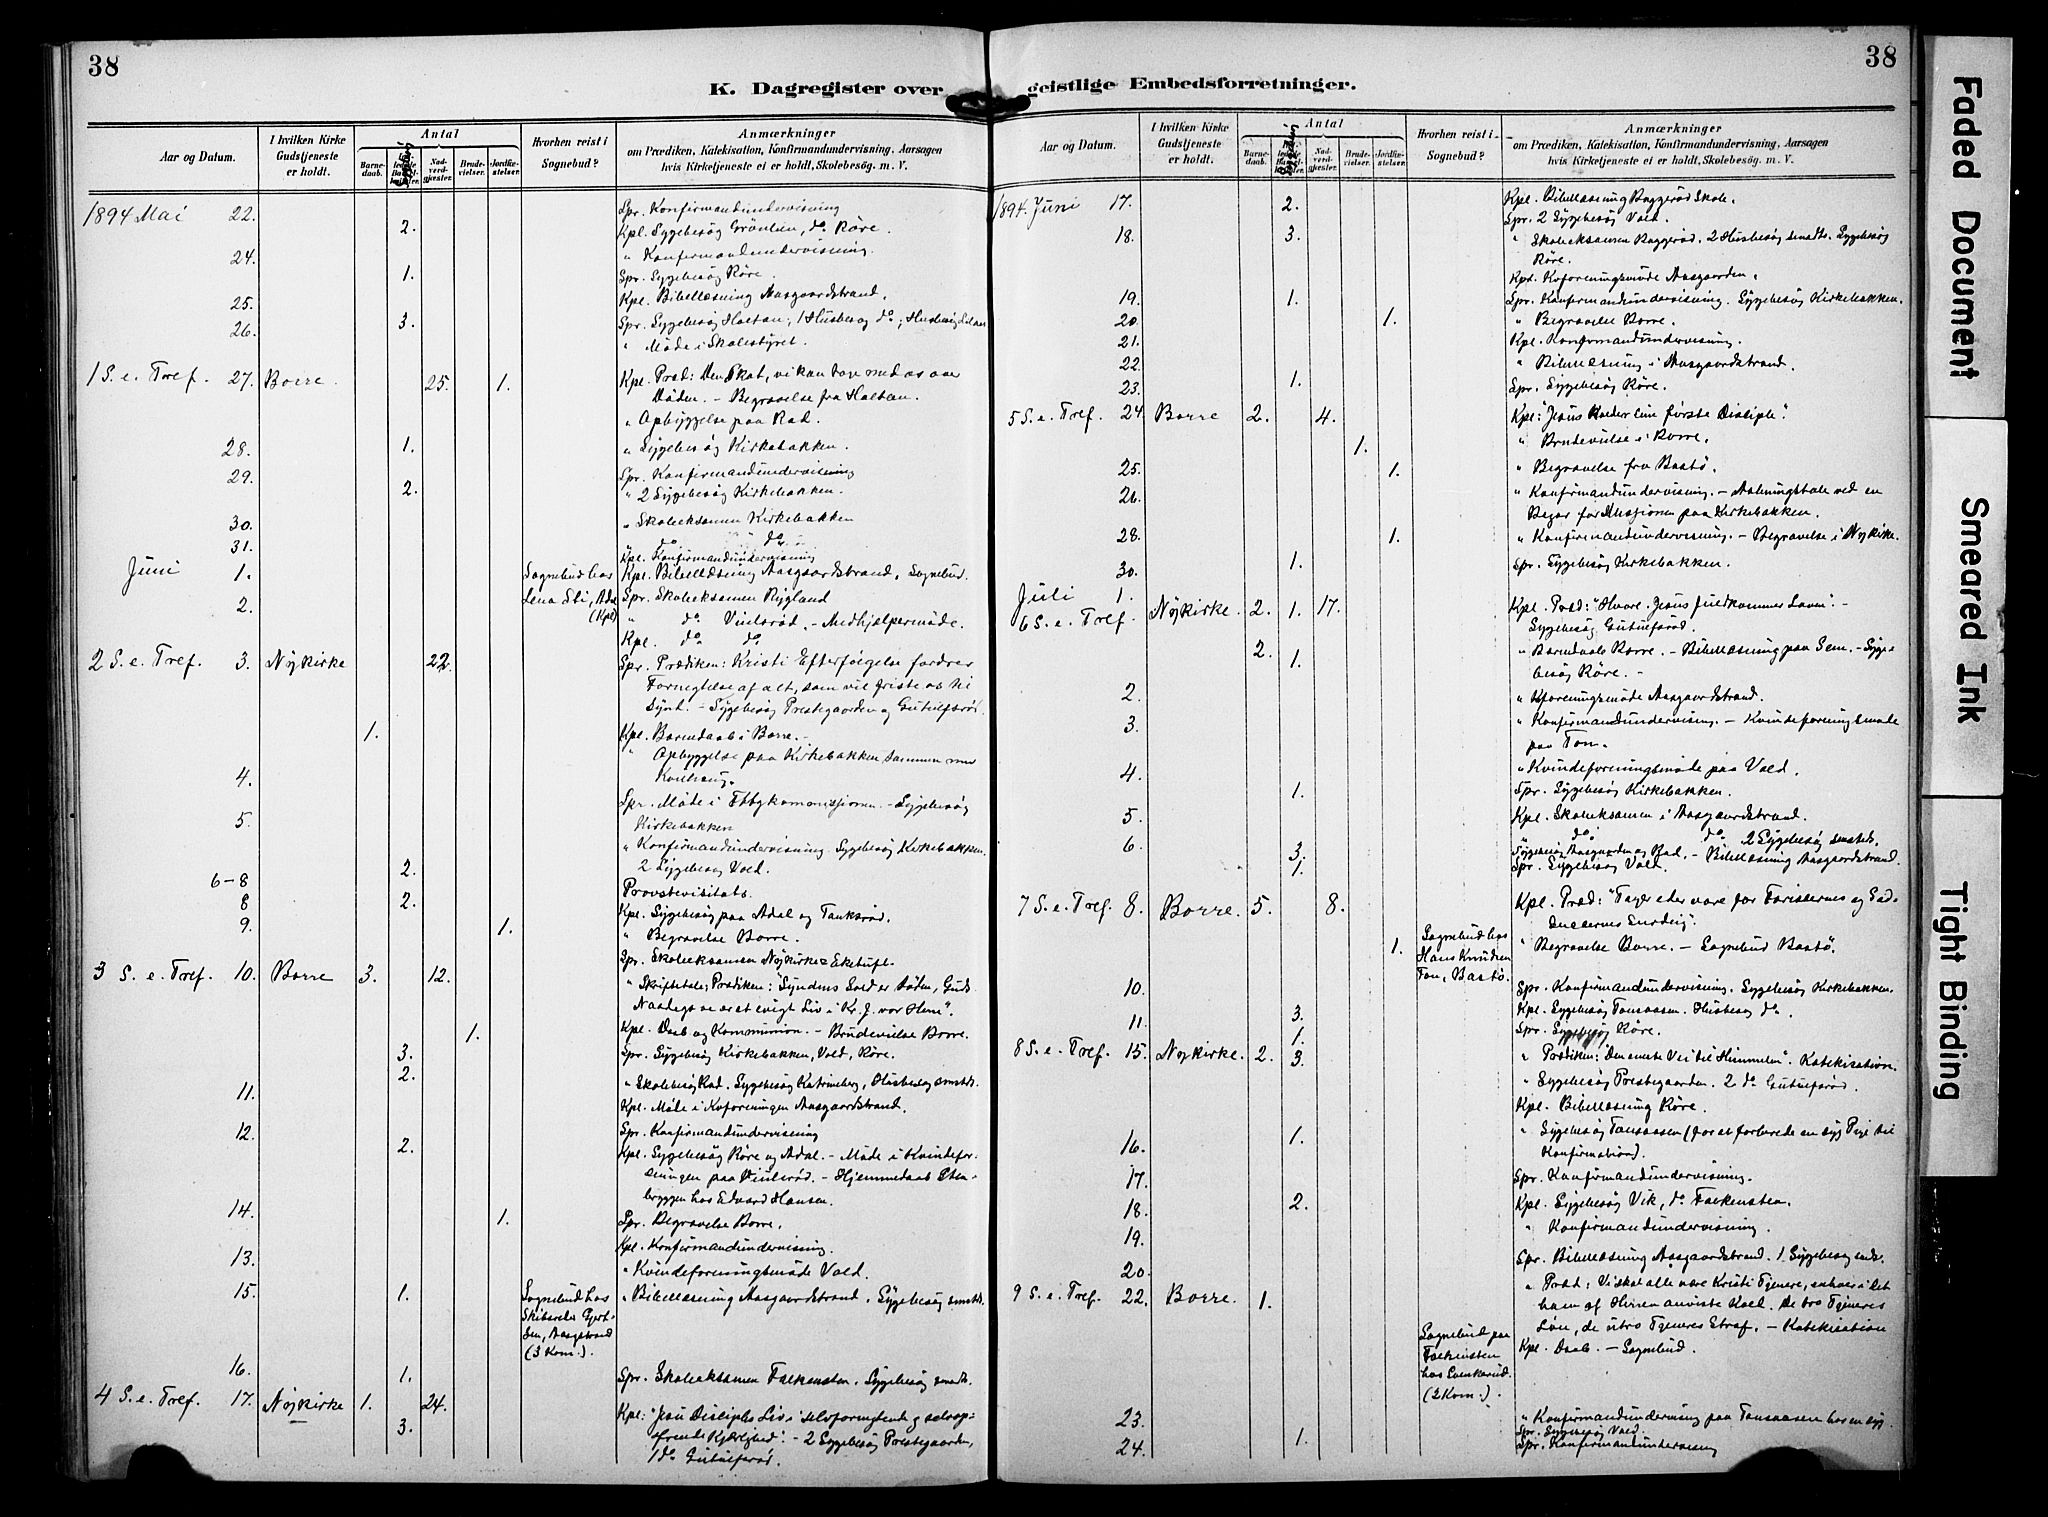 38
K. Dagregister over
Aar og Datum.
I hvilken Kirke Gudstjeneste er holdt.
Antal
Barne-daab.
Nad-verd-gjester.
Brude-vielser.
Jordfæ-stelser.
Hvorhen reist i Sognebud?
Anmærkninger
om Prædiken, Katekisation, Konfirmandundervisning, Aarsagen
hvis Kirketjeneste ei er holdt, Skolebesøg. m. V.
1894 Mai 22. Spr. Konfirmandundervisning
2. Kpl. Sygebesøg Grönlien, do Røre.
24. " Konfirmandundervisning.
1. Spr. Sygebesøg Røre.
25. Kpl. Bibellæsning Aasgaardstrand.
26. 3. Spr. Sygebesøg Holtan; 1 Husbesøg do; Husbesøg
" Møde i Skolestyret.
1 S. e. Tref. 27. Borre. 25. 1. Kpl. Præd: Den Skat, vi kan tage med os over
Døden. – Begravelse fra Holtan.
" Opbyggelse paa Rad.
28. 1. " Sygebesøg Kirkebakken.
29. Spr. Konfirmandundervisning
2. " 2 Sygebesøg Kirkebakken.
30. " Skoleeksamen Kirkebakken
31. " do do
Kpl. Konfirmandundervisning
Juni 1. Sognebud hos Kpl. Bibellæsning Aasgaardstrand. Sognebud.
2. Lena Sli, Spr. Skoleeksamen Nygland
(Kpl) " do Viulsrød. – Medhjælpermøde.
Kpl. do do
2 S. e. Tref. 3. Nykirke 22. Spr. Prædiken: Kristi Efterfølgelse fordrer
Fornegtelse af alt, som vil friste os til
Synd. – Sygebesøg Prestegaarden og Gutulfsrød.
1. Kpl. Barnedaab i Borre. –
" Opbyggelse paa Kirkebakken sammen med
4.
Spr. Møde i – Sygebesøg
5. Kirkebakken
" Konfirmandundervisning. Sygebesøg Kirkebakken.
2. 2 Sygebesøg Vold.
6–8 Provstevisitats.
8 2. Kpl. Sygebesøg paa Adal og Tanksrød.
9. 1. " Begravelse Borre.
Spr. Skoleeksamen Nykirke = Eketuft.
3 S. e. Tref. 10. Borre 3. 12. " Skriftetale; Prædiken: "Syndens Sold er Døden, Guds
Naadegave er et evigt Liv i Kr. J. vor Herre".
1. Kpl. Daab og Kommunion. – Brudevielse Borre.
3. Spr. Sygebesøg Kirkebakken, Vold, Røre.
2. " Skolebesøg Rad. Sygebesøg Katrineberg, Husbesøg smstds.
11. Kpl. Møde i Kvforeningen Aasgaardstrand.
12. Spr. Konfirmandundervisning
2. Kpl. Sygebesøg Røre og Adal. – Møde i Kvindefor-
eningen paa Viulsrød. – Hjemmedaab Sten-
bryggen hos Edvard Hansen.
14. 1. Spr. Begravelse Borre.
Kpl. Konfirmandundervisning.
13. " Kvindeforeningsmøde Vold.
15. 1. Sognebud hos " Bibellæsning Aasgaardstrand. Sygebesøg smstds.
Skibsreder Gjert-
sen, Aasgstrand
(3 Kom.).
16. 1. Spr. Skoleeksamen Falkensten. Sygebesøg smstds.
4 S. e. Tref. 17. Nykirke 1. 24. Kpl: "Jesu Disciples Liv i selvfornegtende og selvop-
3. ofrende Kjærlighed". – 2 Sygebesøg Prestegaarden,
1 do Gutulfsrød.
38
geistlige Embedsforretninger.
Aar og Datum.
I hvilken Kirke Gudstjeneste er holdt.
Antal
Barne-daab.
Nad-verd-gjester.
Brude-vielser.
Jordfæ-stelser.
Hvorhen reist i Sognebud?
Anmærkninger
om Prædiken, Katekisation, Konfirmandundervisning, Aarsagen
hvis Kirketjeneste ei er holdt, Skolebesøg. m. V.
1894. Juni 17. Kpl. Bibellæsning Baggerød Skole.
2. Spr. 2 Sygebesøg Vold.
18. 3. " Skoleeksamen Baggerød. 2 Husbesøg smstds. Sygebesøg
Røre.
Kpl. Kvforeningsmøde Aasgaarden.
19. 1. Spr. Konfirmandundervisning. Sygebesøg Kirkebakken.
20. 1. " Begravelse Borre.
21. Kpl. Konfirmandundervisning.
22. " Bibellæsning i Aasgaardstrand.
23. 1. Spr. Sygebesøg Røre.
5 S. e. Tref. 24. Borre 2. 4. Kpl: "Jesus kalder sine første Disciple".
1. " Brudevielse i Borre.
25. 1. " Begravelse fra Bastø.
26. " Konfirmandundervisning. – Aabningstale ved en
Bazar for Missionen paa Kirkebakken.
28. 1. " Konfirmandundervisning. – Begravelse i Nykirke.
30. 1. Spr. Sygebesøg Kirkebakken.
Juli 1.
6 S. e. Tref. Nykirke. 2. 1. 17. Kpl. Præd: "Hvore. Jesus fuldkommer Loven". –
Sygebesøg Gutulfsrød.
2. 1. " Barnedaab Borre. – Bibellæsning paa Sem. – Syge-
besøg Røre. –
2. " Kvforeningsmøde Aasgaardstrand.
3. " Konfirmandundervisning. – Kvindeforeningsmøde
paa Fon.
4. " Kvindeforeningsmøde paa Vold.
1. Spr. Sygebesøg Kirkebakken.
5. Kpl. Skoleeksamen i Aasgaardstrand.
6. " do do 2 Sygebesøg smstds.
3. Sygebesøg Aasgaarden og Rad. – Bibellæsning Aasgaardstrand.
1. Spr. Sygebesøg Vold.
7 S. e. Tref. 8. Borre. 5. 8. Kpl. Præd: "Tager eder vare for Farisæernes og Sad-
ducæernes Surdeig".
1. Sognebud hos " Begravelse Borre. – Sognebud Bastø.
Hans Knudsen
Fon, Bastø.
10. Spr. Konfirmandundervisning. Sygebesøg Kirkebakken.
3. Kpl. Sygebesøg Tonsaasen. Husbesøg do.
11. 1. Spr. Sygebesøg Røre.
8 S. e. Tref. 15. Nykirke. 2. 3. " Prædiken: "Den eneste Vei til Himmelen". Katekisation.
" Sygebesøg Prestegaarden. 2 do Gutulfsrød.
Kpl. Bibellæsning Røre.
16. 1. " Sygebesøg Tonsaasen (for at forberede en syg Pige til
Konfirmation).
17. Spr. Konfirmandundervisning.
18. 2. Kpl. Sygebesøg Vik, do Falkensten.
19. " Konfirmandundervisning.
20. Spr. Bibellæsning Aasgaardstrand. 1 Sygebesøg smds.
9 S. e. Tref. 22. Borre. 1. " Præd: Vi skal alle være Kristi Tjenere, enhver i det
ham af Herren anviste Kald. De tro Tjeneres
Løn, de utro Tjeneres Straf. – Katekisation
Sognebud paa Kpl. Daab. – Sognebud.
Falkensten
hos Evenksrud.
(2 Kom.).
23. " Konfirmandundervisning paa Tonsaasen hos en syg.
1. Spr. Sygebesøg Vold.
24. Spr. Konfirmandundervisning
Faded Document
Smeared Ink
Tight Binding